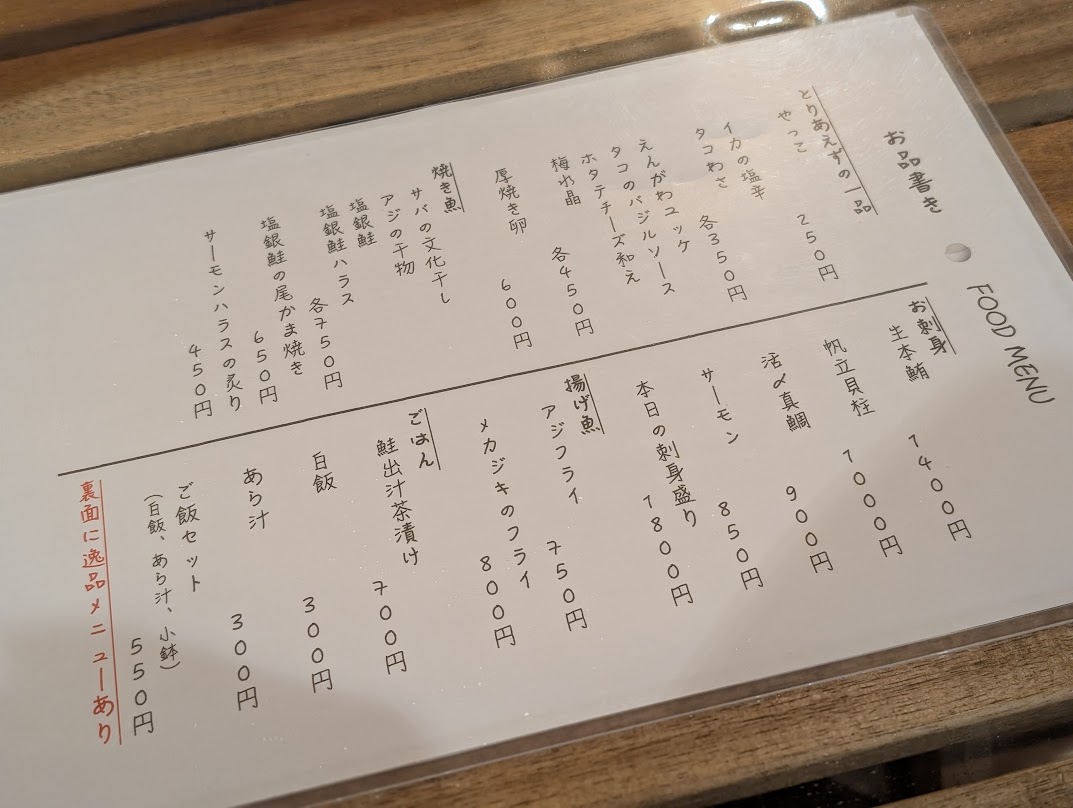 お品書き
FOOD MENU
とりあえずの一品
やっこ 250円
イカの塩辛
タコわさ 各350円
えんがわユッケ
タコのバジルソース
ホタテチーズ和え
梅水晶 各450円
厚焼き卵 600円
焼き魚
サバの文化干し
アジの干物
塩銀鮭
塩銀鮭ハラス 各750円
塩銀鮭の尾かま焼き 650円
サーモンハラスの炙り 450円
お刺身
生本鮪 1400円
帆立貝柱 1000円
活〆真鯛 900円
サーモン 850円
本日の刺身盛り 1800円
揚げ魚
アジフライ 750円
メカジキのフライ 800円
ごはん
鮭出汁茶漬け 700円
白飯 300円
あら汁 300円
ご飯セット
(白飯、あら汁、小鉢) 550円
裏面に逸品メニューあり